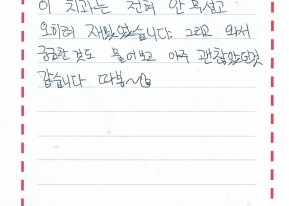 이 치과는 전혀 안 무섭고
오히려 재밌었습니다. 그리고 와서
궁금한 것도 물어보고 아주 괜찮았던것
같습니다 따봉~